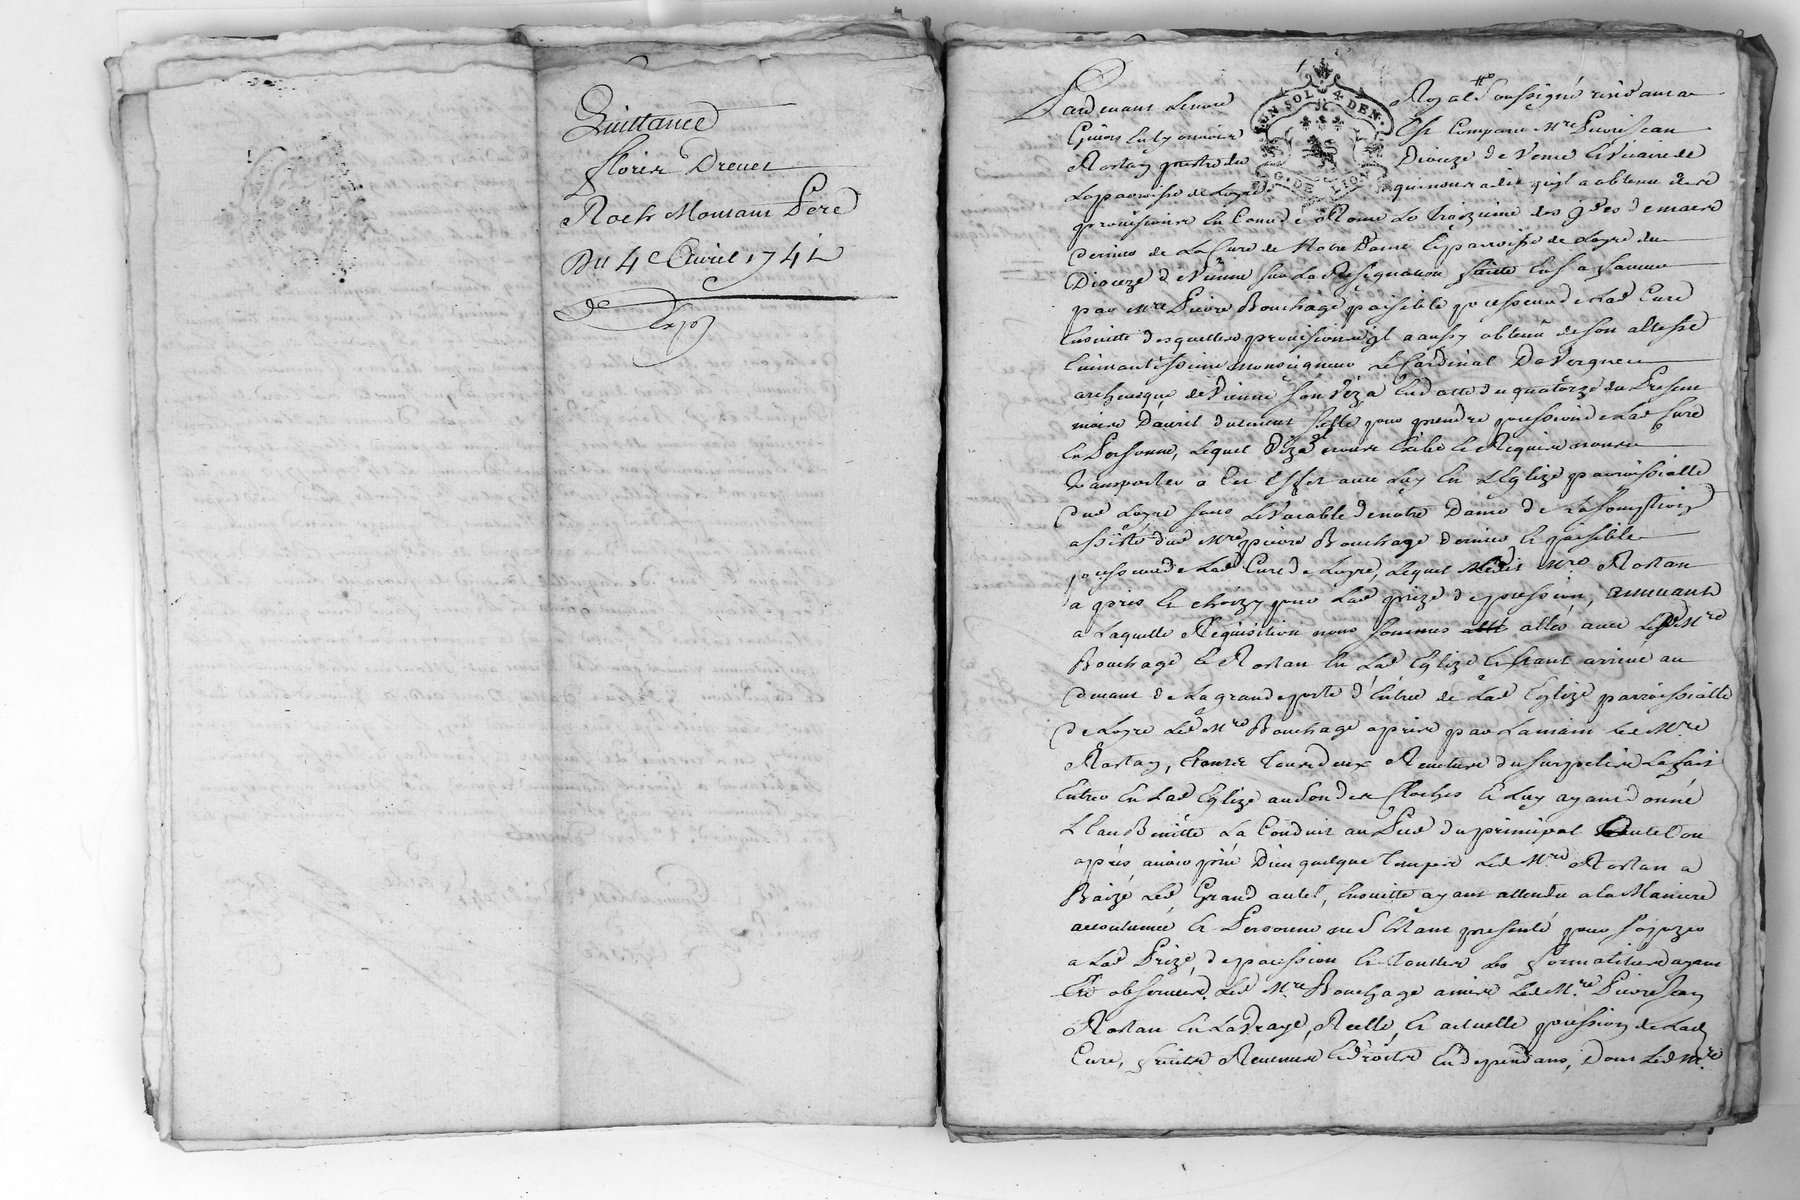 Quittance
florie Drevet
Roch Montant Pere
Du 4e Avril 1741
de
UN SOL 4 DEN.
G. DE LION
Pardevant Le nore Royal soussigné residant a
en Lyonnois Est Comparu Mre Pierre Jean
Rostan prestre du Dioceze de Vienne et Vicaire de
La parroisse de Loyre qui nous a dit qu'il a obtenu des
provisions en Cour de Rome Le des ides de mars
dernier de La Cure de Notre Dame Et parroisse de Loyre du
Dioceze de Vienne sur La Resignation faitte en sa faveur
par Mre Pierre Bouchage paisible possesseur de Lad Cure
Ensuitte desquelles provisions il a aussy obtenu de son altesse
Eminentissime monseigneur Le Cardinal Dauvergne
archevesque de Vienne son viza En datte du quatorze du Present
mois Davril dument scellé pour prendre possession de Lad Cure
En Personne, Lequel viza nous Exibe Et Requiert nous
transporter a Cet Effet avec Luy En L'Eglize parroissialle
dud Loyre sous Le Vocable de notre Dame de Lasomption
assisté dud Mre pierre Bouchage dernier Et paisible
possesseur de Lad Cure de Loyre, Lequel Ledit Mre Rostan
a pris Et choizy pour Lad prize de possession, suivant
a Laquelle Requisition nous sommes allé allés avec Lesd Mre
Bouchage Et Rostan En Lad Eglize Et Etant arrivé au
devant de La grande porte d'Entrée de Lad Eglize parroissialle
de Loyre Led Mre Bouchage a pris par La main Led Mre
Rostan, Etant tous deux Revetus du surpelis La fait
Entrer En Lad Eglize au son des Cloches Et Luy ayant donné
L'Eau Benitte La Conduit au Pied du principal autel ou
aprés avoir prié Dieu quelque temps Led Mre Rostan a
Baizé Led Grand autel, Ensuitte ayant attendu a la Maniere
accoutumée Et Personne ne S'Etant presenté pour s'opozer
a Lad Prize de possession Et touttes Les formalités ayant
Eté observées, Led Mre Bouchage a mis Led Mre Pierre Jean
Rostan En La Vraye, Reelle, Et actuelle possession de Lad
Cure, fruits Revenus Et droits En dependans, Dont Led Mre